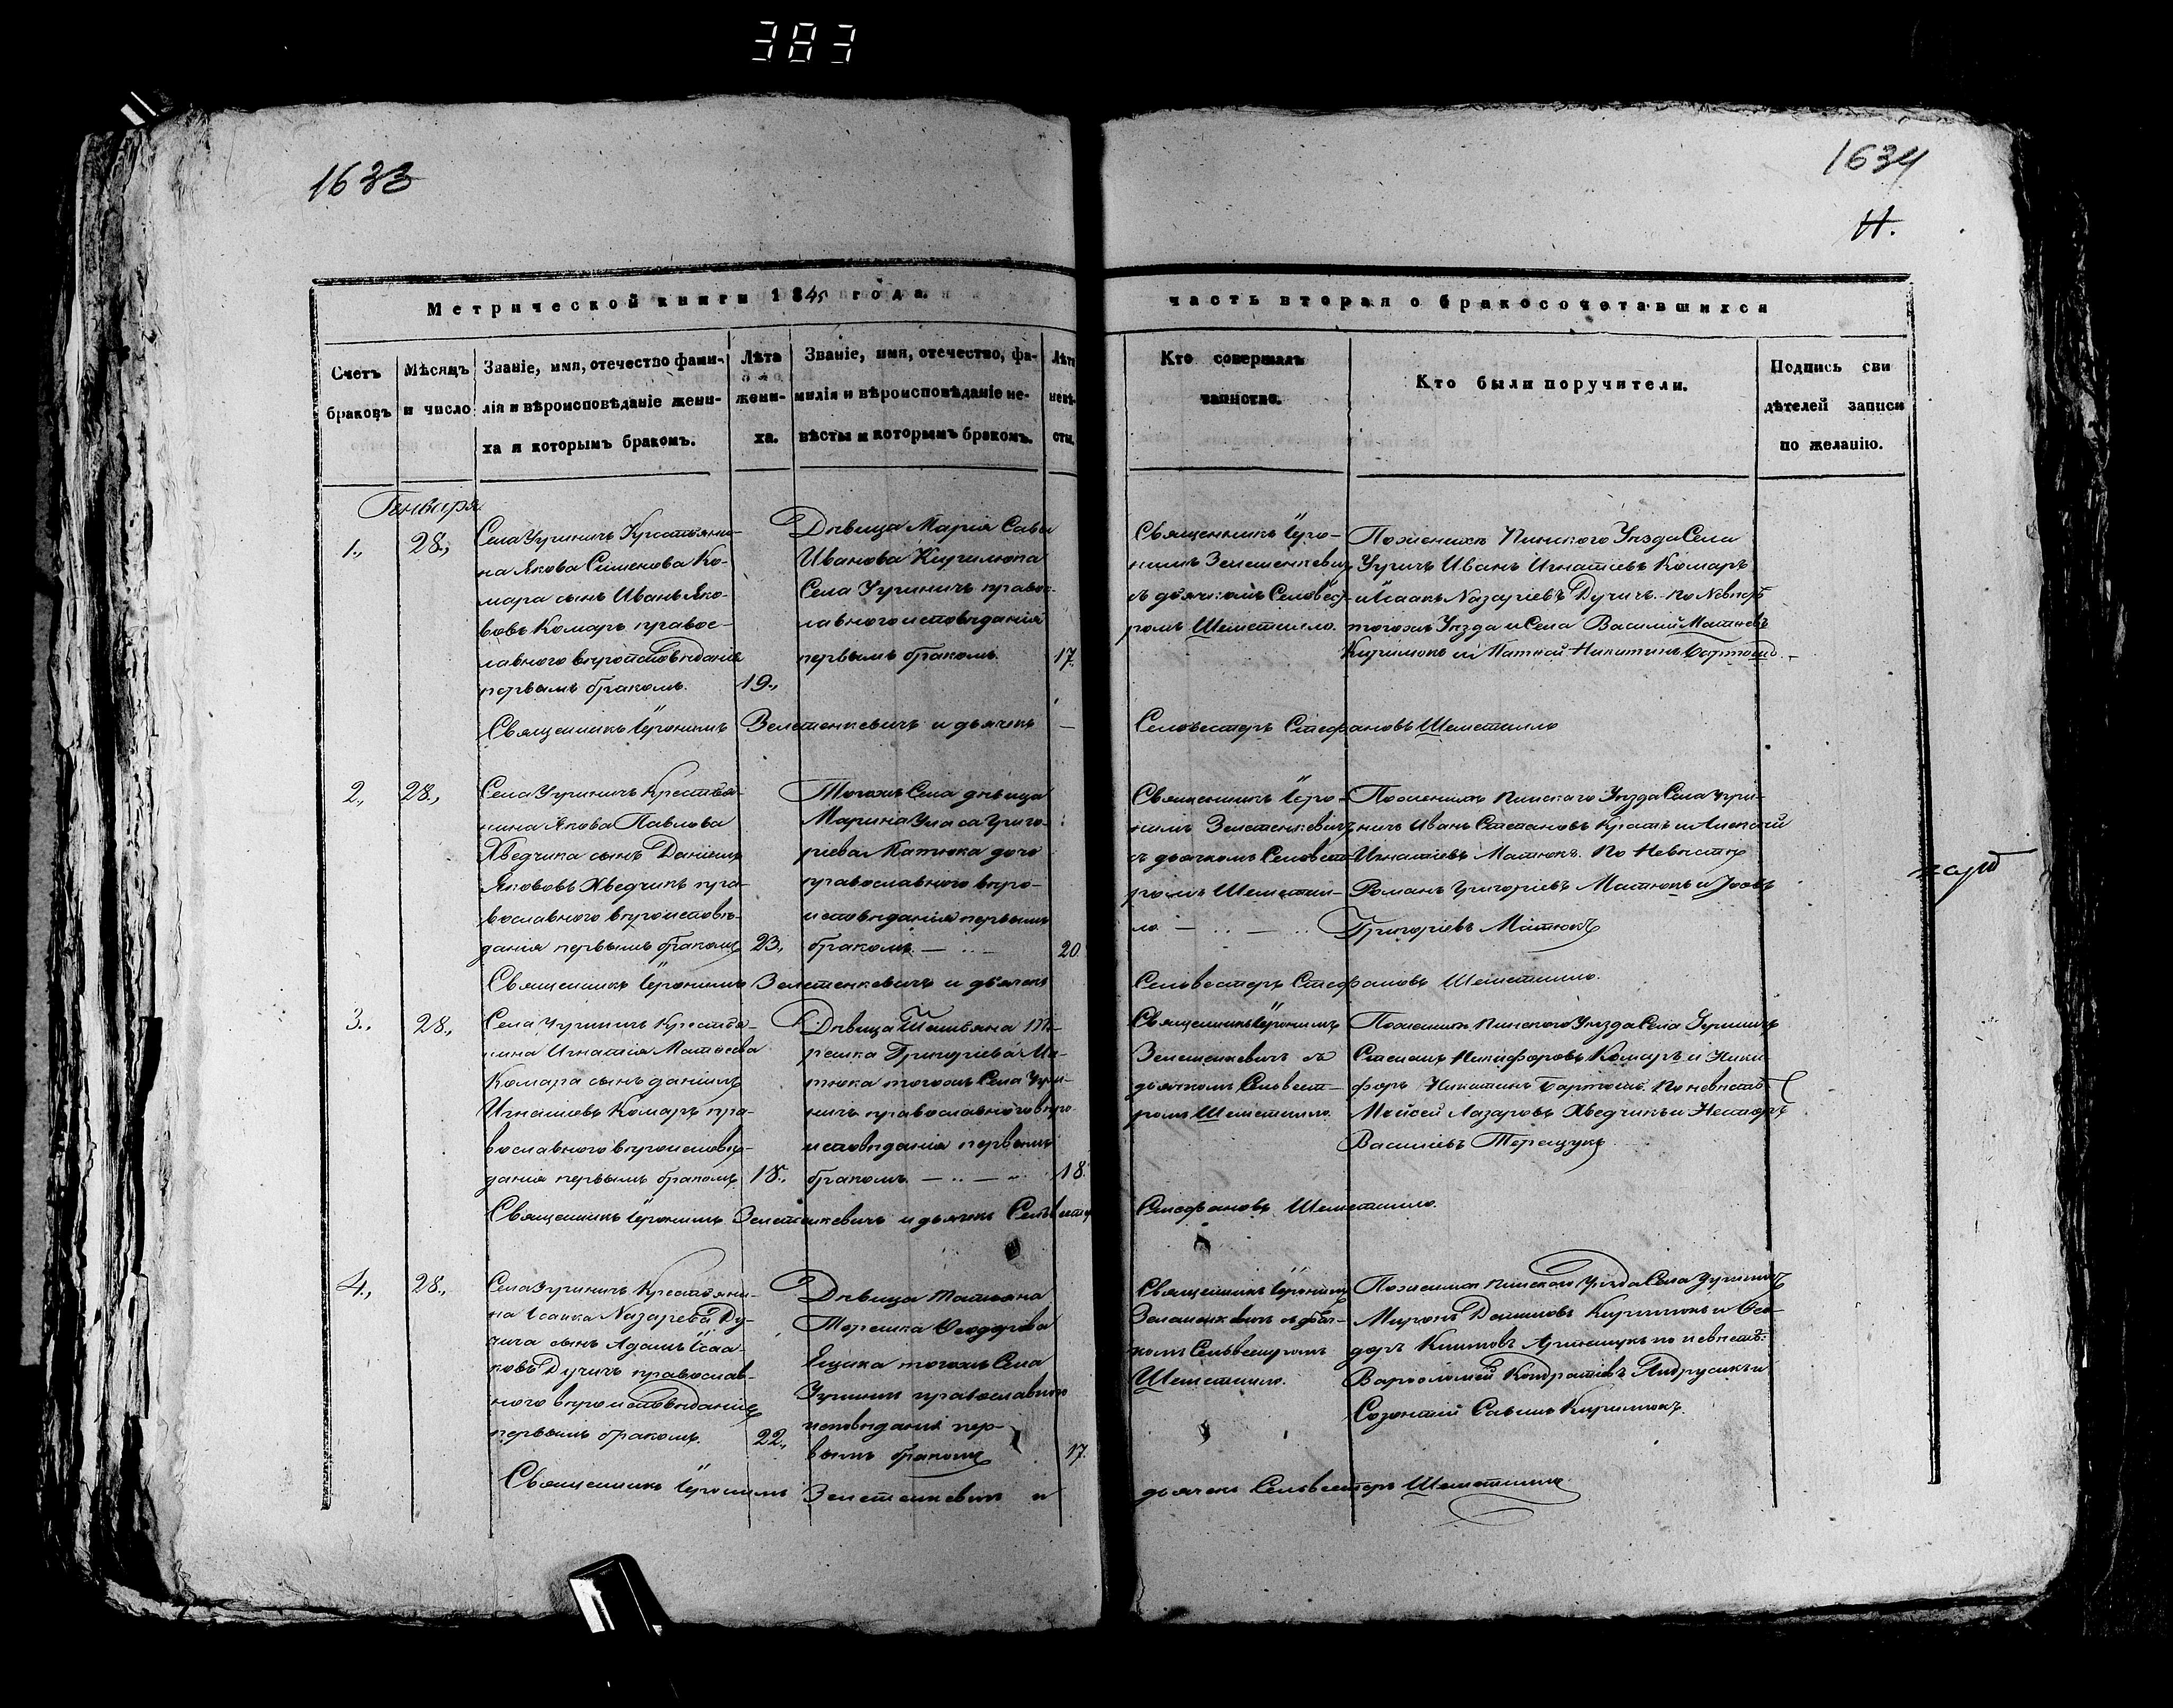 383
1633
1634
11.
Метрической книги 1845 года
часть вторая о бракосочетавшихся
Счетъ браковъ
Мѣсяцъ и число
Званіе, имя, отечество фами-
лія и вѣроисповѣданіе жени-
ха и которымъ бракомъ.
Лѣта жени-
ха.
Званіе, имя, отечество, фа-
милія и вѣроисповѣданіе не-
вѣсты и которымъ бракомъ.
Лѣта невѣ-
сты.
Кто совершалъ
таинство.
Кто были поручители.
Подпись сви
дѣтелей записи
по желанію.
Генваря
1., 28.,
Села Угриничъ Крестьяни-
на Якова Сименова Ко-
мара сынъ Иванъ Яко-
вовъ Комаръ правос-
лавного вѣроисповѣданія
первымъ бракомъ.
19.,
Дѣвица Марія Савы
Иванова
Села Угриничъ правос-
лавного исповѣданія
первымъ бракомъ.
17.
Священникъ Іеро-
нимъ Зелетенкевичъ
съ дьячкомъ Селвест-
ромъ Шеметилло.
Пожениху Пинского Уѣзда Села
Иванъ Игнатіевъ Комаръ
и Исаакъ Назаріевъ Дучичъ. по Невѣстѣ
тогожъ Уѣзда и Села Василий
и Никитинъ
Священникъ Іеронимъ Зелетенкевичъ и дьячекъ —
Селвестеръ Стефановъ Шеметилло
2., 28.,
Села Угриничъ Крестья-
нина Якова Павлова
Хведчика сынъ Даніилъ
Якововъ Хведчикъ пра-
вославного вѣроисповѣ-
данія первымъ бракомъ
23.,
Тогожъ Села дѣвица
Марина Уласа Григо-
ріева Матюка дочь
православного вѣро-
исповѣданія первымъ
бракомъ. —
20.
Священникъ Іеро-
нимъ Зелетенкевичъ
съ дьячкомъ Селвест-
ромъ Шеметил-
ло. —
Пожениху Пинскаго Уѣзда Села Угри-
ничъ Иванъ Степановъ и Алексей
Игнатіевъ Матюкъ. По Невѣстѣ
Романъ Григоріевъ Матюкъ и
Григоріевъ Матюкъ
Священникъ Іеронимъ Зелетенкевичъ и дьячекъ
Сельвестеръ Стефановъ Шеметилло.
3., 28.,
Села Угриничъ Крестья-
нина Игнатія
Комара сынъ Даніилъ
Игнатіевъ Комаръ пра-
вославного вѣроисповѣ-
данія первымъ бракомъ
18.,
Дѣвица
Григоріева Ма-
тюка тогожъ Села Угри-
ничъ православного вѣро
исповѣданія первымъ
бракомъ —
18.
Священникъ Іеронимъ
Зелетенкевичъ съ
дьячкомъ Сельвест-
ромъ Шеметилло.
Пожениху Пинского Уѣзда Села Угриничъ
Степанъ Никифоровъ Комаръ и Ники-
форъ Никитинъ По невѣстѣ
Мойсей Лазаровъ Хведчикъ и Несторъ
Василіевъ Терещукъ
Священникъ Іеронимъ Зелетенкевичъ и дьячекъ Сельвестеръ
Стефановъ Шеметилло.
4., 28.,
Села Угриничъ Крестьяни-
на Исаака Назарева Ду-
чича сынъ Адамъ Исаа-
ковъ Дучичъ православ-
ного вѣроисповѣданія
первымъ бракомъ.
22.,
Дѣвица Татьяна
Терешка Феодорова
тогожъ Села
Угриничъ православного
исповѣданія пер-
вымъ бракомъ
17.
Священникъ Іеронимъ
Зелетенкевичъ съ дьяч-
комъ Сельвестромъ
Шеметилло.
Пожениху Пинского Уѣзда Села Угриничъ
Миронъ Даниловъ и Фео-
доръ Климовъ по невѣстѣ:
Варфоломей Кондратіевъ Андрусикъ и
Созонтій Савинъ
Священникъ Іеронимъ Зелетенкевичъ и
дьячекъ Сельвестеръ Шеметилло